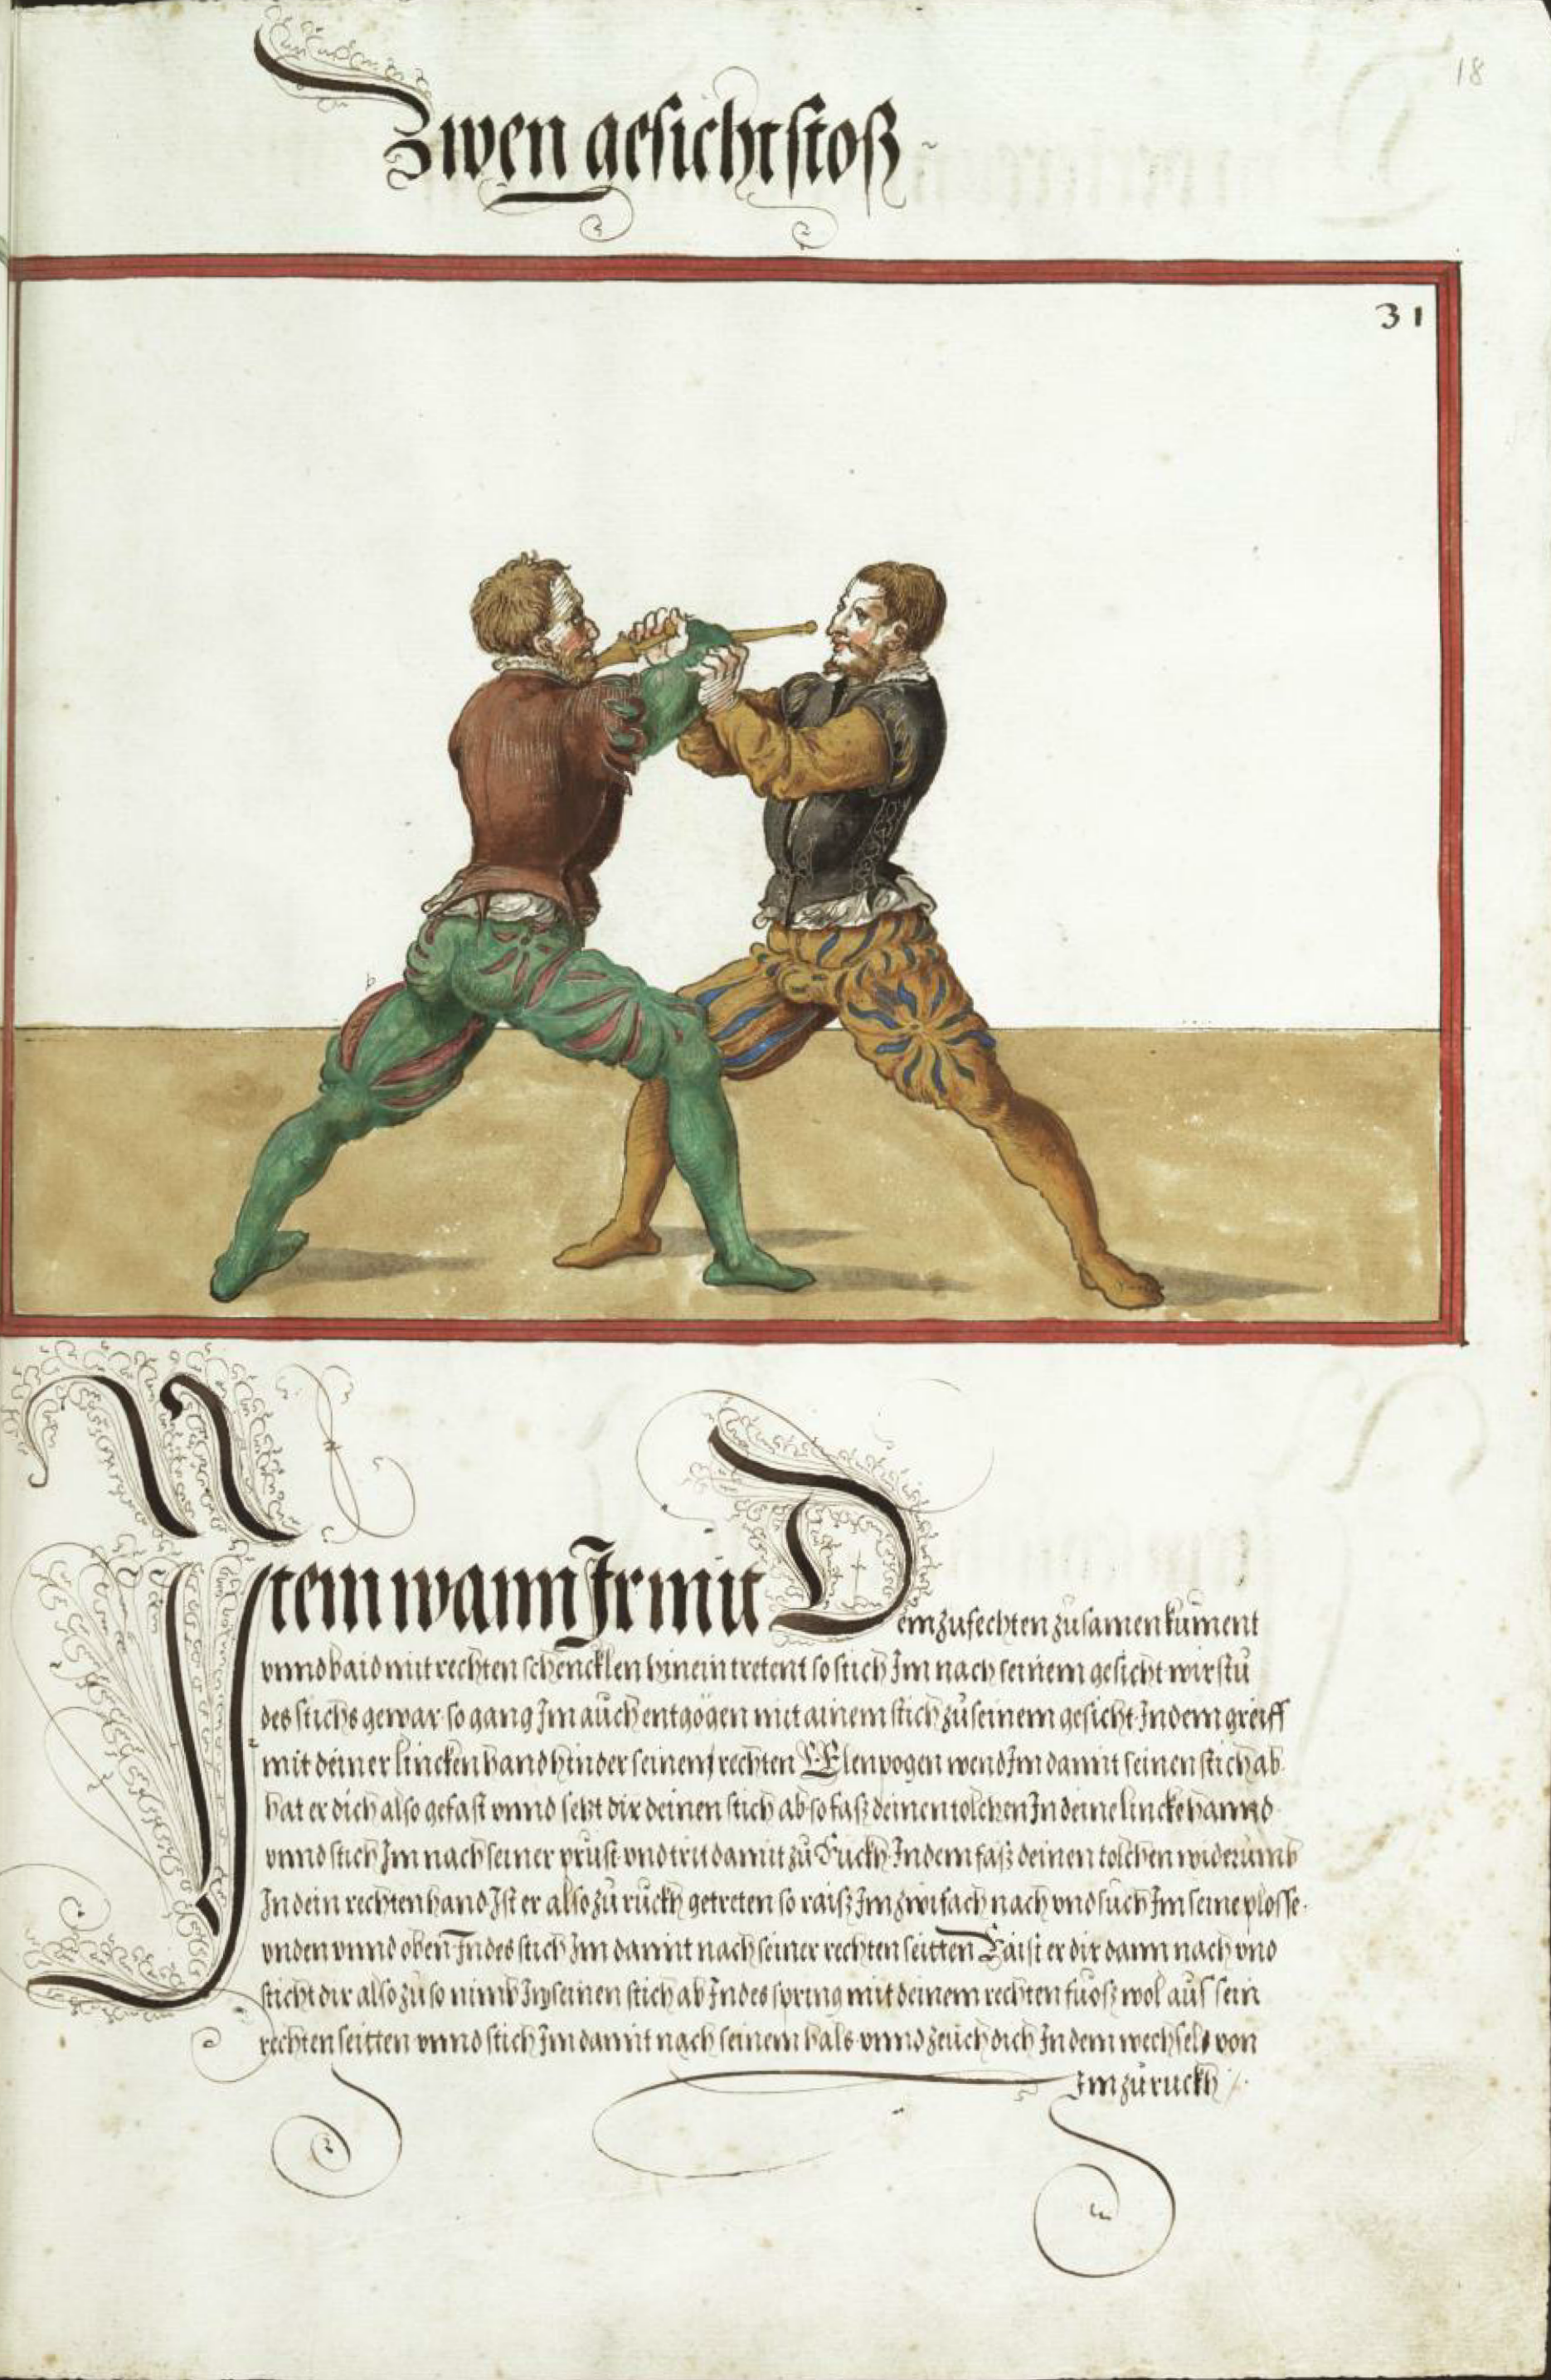 18
Zwen gesicht stoß
31
Item wann Ir mit Dem zufechten zusamen kument
vnnd baid mit rechten schencklen hinein tretent so stich Im nach seinem gesicht wirstu
des stichs gewar so gang Im auch entgögen mit ainem stich zu seinem gesicht Indem greiff
mit deiner lincken hand hinder seinem rechten Elenpogen wend Im damit seinen stich ab
hat er dich also gefast vnnd setzt dir deinen stich ab so fass deinen tolchen In deine lincke hannd
vnnd stich Im nach seiner prust vnd trit damit zu Ruckh Indem fass deinen tolchen widerumb
In dein rechten hand Ist er also zu ruckh getreten so raiss Im zwifach nach vnd such Im seine plosse
vnden vnnd oben Indes stich Im damit nach seiner rechten seitten Raist er dir dann nach vnd
sticht dir also zu so nimb Im seinen stich ab Indes spring mit deinem rechten fuoss wol auf sein
rechten seitten vnnd stich Im damit nach seinem hals vnnd zeuch dich In dem wechsel von
Im zuruckh